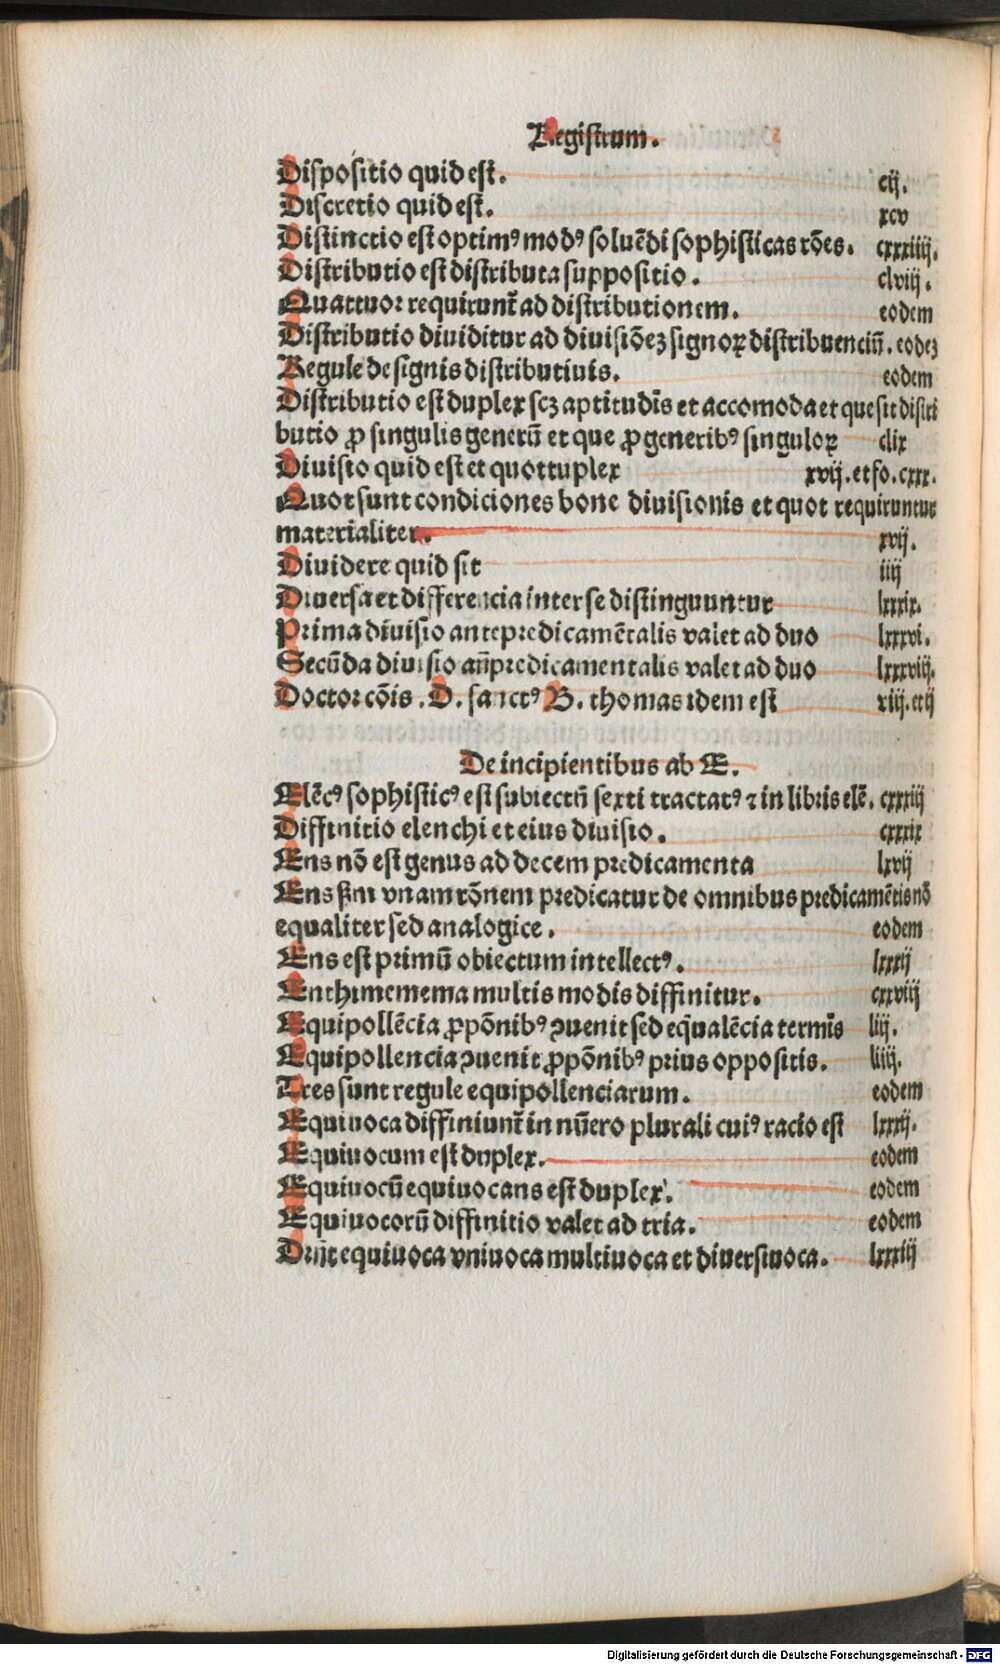 Registrum.
Dispositio quid est. cij.
Discretio quid est. xcv
Distinctio est optimꝰ modꝰ soluēdi sophisticas rōes. cxxxiiij.
Distributio est distributa suppositio. clviij.
Quattuor requirunt̄ ad distributionem. eodem
Distributio diuiditur ad diuisiōeꝫ signoꝝ distribuenciū. eodeꝫ
Regule de signis distributiuis. eodem
Distributio est duplex scꝫ aptitudīs et accomoda et que sit distri
butio ꝓ singulis generū et que ꝓ generibꝰ singuloꝝ clix
Diuisio quid est et quottuplex xvij. et fo. cxxx.
Quot sunt condiciones bone diuisionis et quot requiruntur
materialiter. xvij.
Diuidere quid sit iiij
Diuersa et differencia inter se distinguuntur lxxxix.
Prima diuisio antepredicamētalis valet ad duo lxxxvi.
Secūda diuisio an̄predicamentalis valet ad duo lxxxviij.
Doctor cōis. D. sanctꝰ B. thomas idem est xiij. et ij
De incipientibus ab E.
Elēcꝰ sophisticꝰ est subiectū sexti tractatꝰ ⁊ in libris elē. cxxxiij
Diffinitio elenchi et eius diuisio. cxxxix
Ens nō est genus ad decem predicamenta lxvij
Ens ẜm vnam rōnem predicatur de omnibus predicamētis nō
equaliter sed analogice. eodem
Ens est primū obiectum intellectꝰ. lxxxij
Enthimemema multis modis diffinitur. cxxviij
Equipollēcia ꝓpōnibꝰ ꝯuenit sed eq̄ualēcia termīs liij.
Equipollencia ꝯuenit ꝓpōnibꝰ prius oppositis. liiij.
Tres sunt regule equipollenciarum. eodem
Equiuoca diffiniunt̄ in nūero plurali cuiꝰ racio est lxxxij.
Equiuocum est duplex. eodem
Equiuocū equiuocans est duplex. eodem
Equiuocorū diffinitio valet ad tria. eodem
Drn̄t equiuoca vniuoca multiuoca et diuersiuoca. lxxxiij
Digitalisierung gefördert durch die Deutsche Forschungsgemeinschaft - DFG